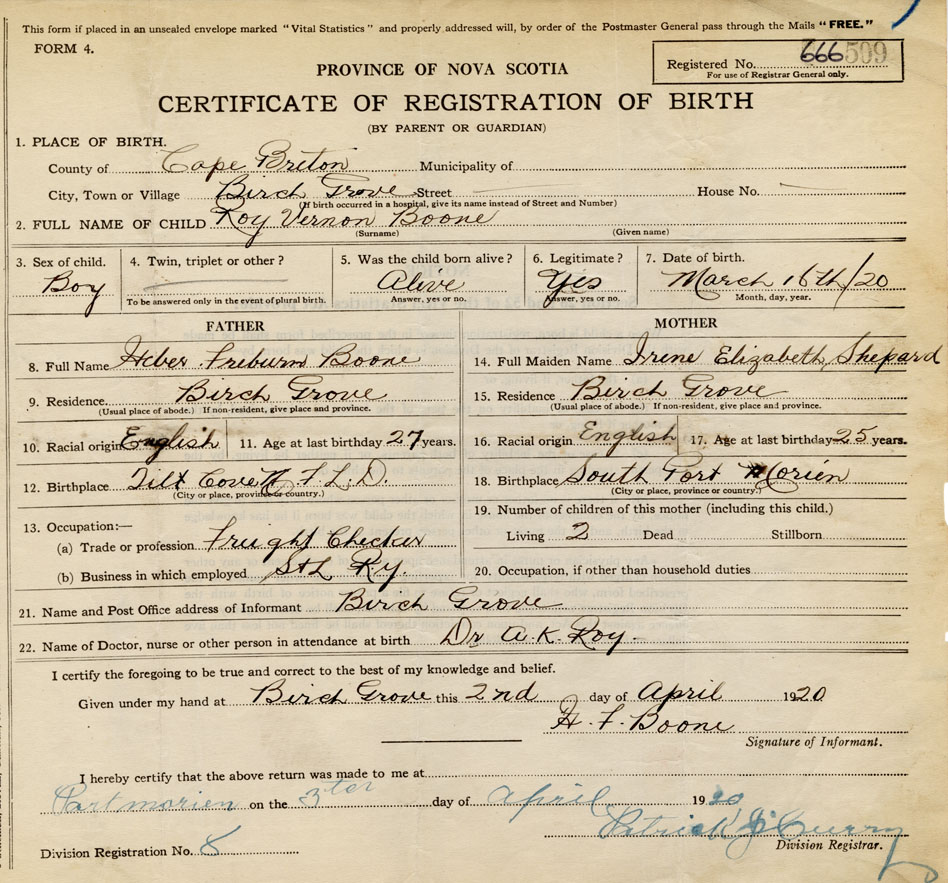 This form if placed in an unsealed envelope marked "Vital Statistics" and properly addressed will, by order of the Postmaster General pass through the Mails "FREE."
FORM 4.
Registered No. 666 509
For use of Registrar General only.
PROVINCE OF NOVA SCOTIA
CERTIFICATE OF REGISTRATION OF BIRTH
(BY PARENT OR GUARDIAN)
1. PLACE OF BIRTH.
County of Cape Breton Municipality of
City, Town or Village Birch Grove Street House No.
(If birth occurred in a hospital, give its name instead of Street and Number)
2. FULL NAME OF CHILD Roy Vernon Boone
(Surname) (Given name)
3. Sex of child. 4. Twin, triplet or other? 5. Was the child born alive? 6. Legitimate? 7. Date of birth.
Boy Alive Yes March 16th/20
To be answered only in the event of plural birth. Answer, yes or no. Answer, yes or no. Month, day, year.
FATHER MOTHER
8. Full Name Heber Freburn Boone 14. Full Maiden Name Irene Elizabeth Shepard
9. Residence Birch Grove 15. Residence Birch Grove
(Usual place of abode.) If non-resident, give place and province. (Usual place of abode.) If non-resident, give place and province.
10. Racial origin English 11. Age at last birthday 27 years. 16. Racial origin English 17. Age at last birthday 25 years.
12. Birthplace Tilt Cove N.F.L.D. 18. Birthplace South Port Morien
(City or place, province or country.) (City or place, province or country.)
13. Occupation:— 19. Number of children of this mother (including this child.)
(a) Trade or profession Freight Checker Living 2 Dead Stillborn
(b) Business in which employed S&L Ry. 20. Occupation, if other than household duties
21. Name and Post Office address of Informant Birch Grove
22. Name of Doctor, nurse or other person in attendance at birth Dr A. K. Roy.
I certify the foregoing to be true and correct to the best of my knowledge and belief.
Given under my hand at Birch Grove this 2nd day of April 1920
H. F. Boone
Signature of Informant.
I hereby certify that the above return was made to me at
Portmorien on the day of April 1920
Patrick J Curry
Division Registrar.
Division Registration No. 8